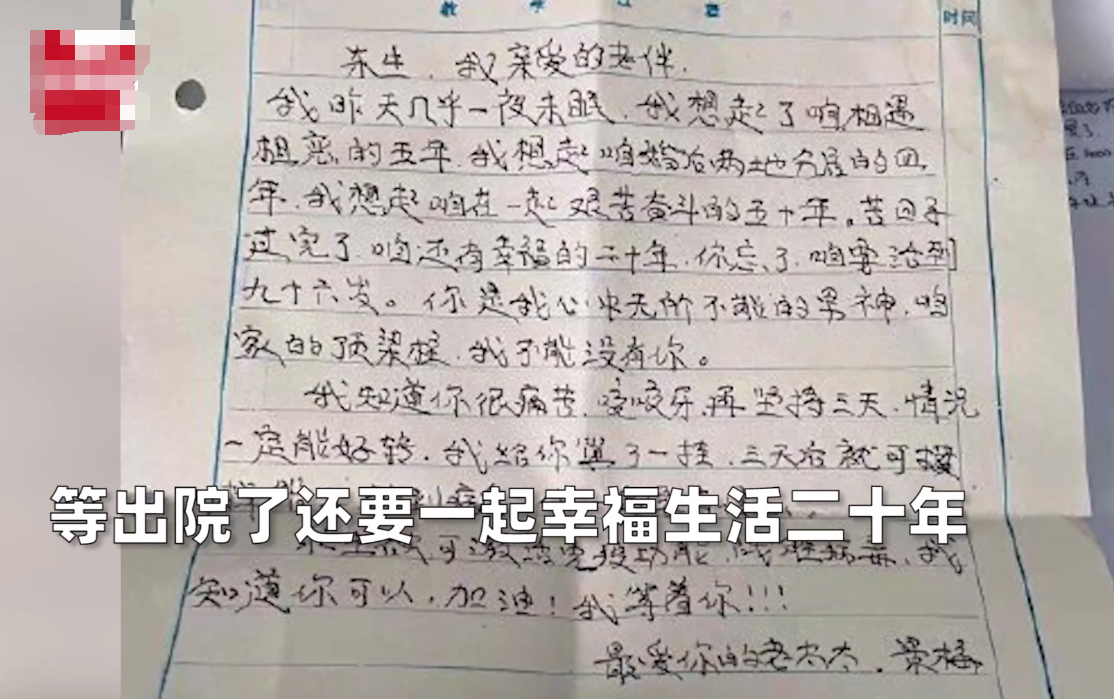 教 学 过 程
时间
东生，我亲爱的老伴，
我昨天几乎一夜未眠，我想起了咱相遇
相恋的五年，我想起咱婚后两地分居的四
年，我想起咱在一起艰苦奋斗的五十年。苦日子
过完了，咱还有幸福的二十年，你忘了，咱要活到
九十六岁。你是我心中无所不能的男神，咱
家的顶梁柱，我不能没有你。
我知道你很痛苦，咬咬牙，再坚持三天，情况
一定能好转，我给你算了一挂，三天后就可摆
等出院了还要一起幸福生活二十年
可激活免疫功能，战胜病毒，我
知道你可以，加油！我等着你！！！
最爱你的老太太，梁